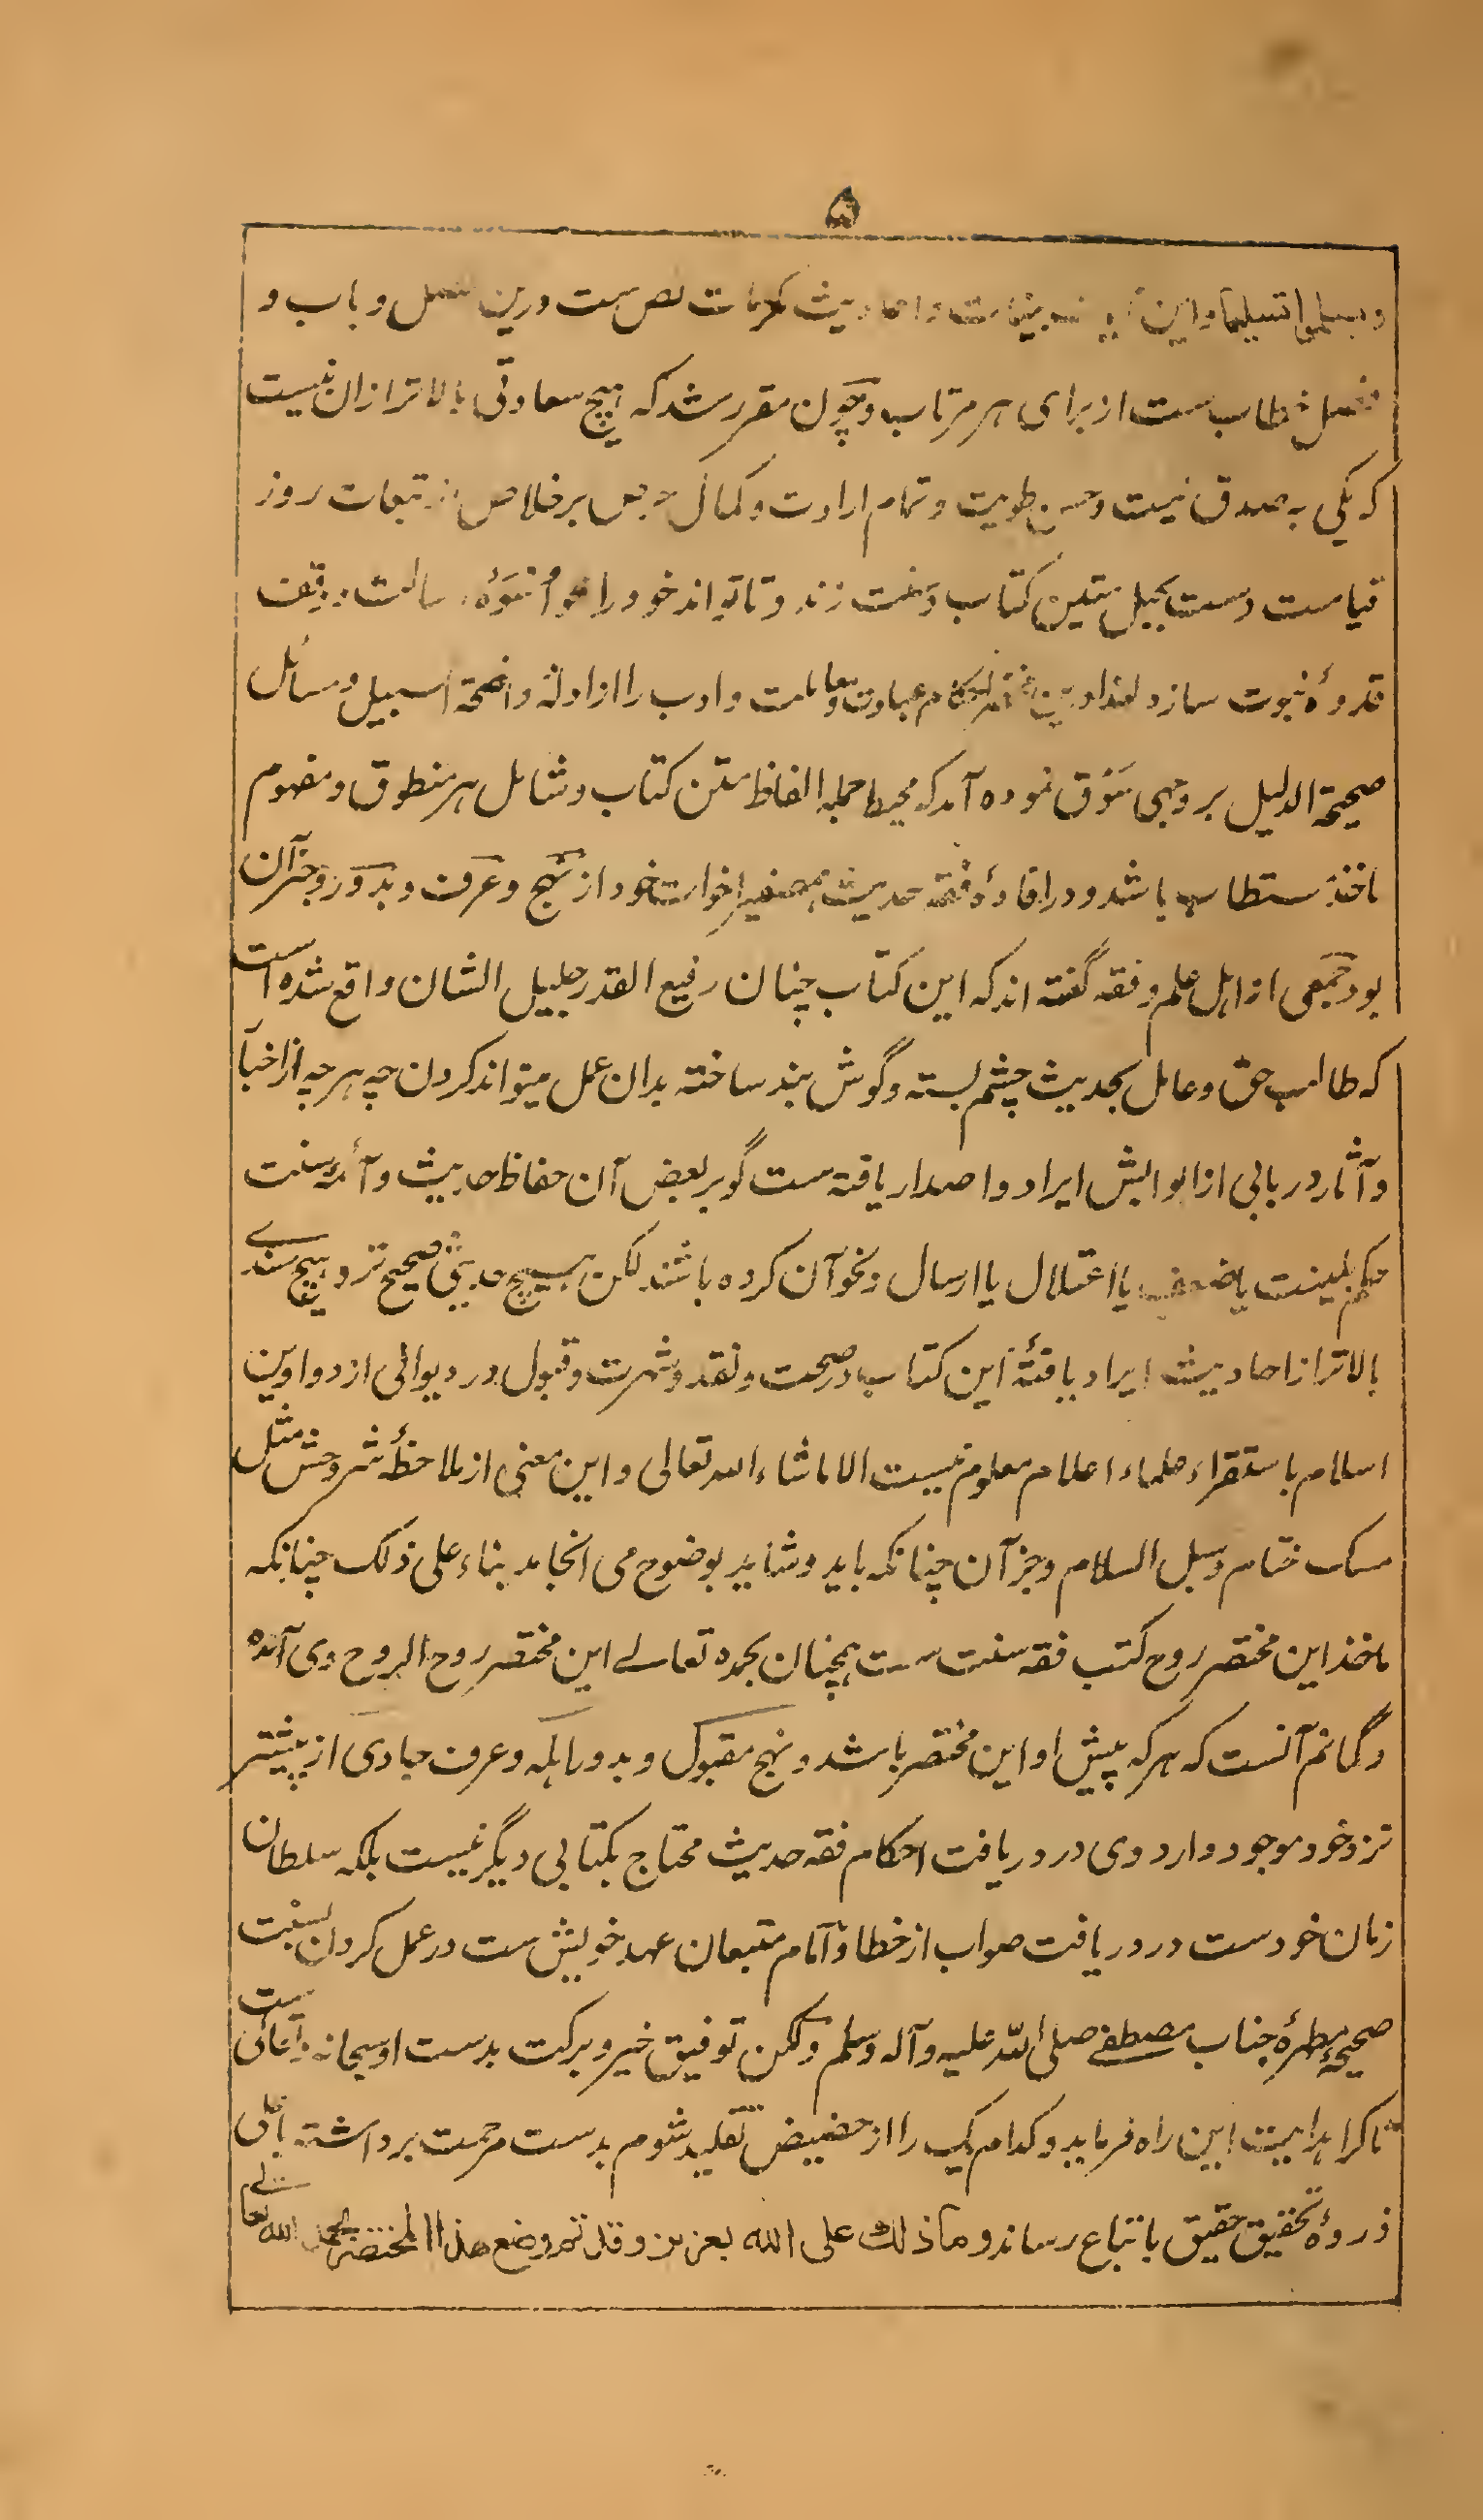 ۵
ویسلموا تسلیما و این بینات و احادیث کریمات نص ست درین و باب و
فصل خطاب ست از برای هر مرتاب و چون مقرر شد که هیچ سعادتی بالاتر ازان نیست
که یکی به صدق نیت و حسن طویت و تمام ارادت و کمال حرص بر خلاص از تبعات روز
قیامت دست بحبل متین کتاب و سنت زند و تا تواند خود را محو اُسْوَۀ رسالت و وقف
قدوۀ نبوت سازد لهذا درین مختصر احکام عبادت و معاملت و ادب را از ادلۀ واضحة السبیل و مسائل
صحیحة الدلیل بر وجهی مَسُوق نموده آمد که محیط جمله الفاظ متن کتاب و شامل هر منطوق و مفهوم
ماخذ مستطاب باشد و در افادۀ فقه حدیث همصفیر اخوات خود از نهج و عرف و بدور و جز آن
بود جمعی از اهل علم و فقه گفته اند که این کتاب چنان رفیع القدر جلیل الشان واقع شده است
که طالب حق و عامل بحدیث چشم بسته و گوش بند ساخته بدان عمل میتواند کردن چه هرچه از اخبار
و آثار در بابی از ابوابش ایراد و اصدار یافته ست گو بر بعض آن حفاظ حدیث و آئمۀ سنت
حکم بلینت یا ضعف یا اعتلال یا ارسال و نحو آن کرده باشند لکن هیچ حدیثی صحیح تر و هیچ سندے
بالاتر از احادیث ایراد یافتۀ این کتاب در صحت و نقد و شهرت و قبول در دیوانی از دواوین
اسلام باستقراء علماء اعلام معلوم نیست الا ماشاء الله تعالی و این معنی از ملاحظۀ شروحش مثل
مسک ختام و سبل السلام و جز آن چنانکه باید و شاید بوضوح می انجامد بناء علی ذلک چنانکه
ماخذ این مختصر روح کتب فقه سنت ست همچنان بحمده تعالے این مختصر روح الروح وی آمده
و گمانم آنست که هر که پیش او این مختصر باشد و نهج مقبول و بدور اهله و عرف جادی از پیشتر
نزد خود موجود دارد وی در دریافت احکام فقه حدیث محتاج بکتابی دیگر نیست بلکه سلطان
زمان خودست در دریافت صواب از خطا و امام متبعان عهد خویش ست در عمل کردن بسنت
صحیحۀ مطهرۀ جناب مصطفے صلی الله علیه و آله وسلم ولکن توفیق خیر و برکت بدست او سبحانه و تعالی ست
تا کرا هدایت این راه فرماید و کدام یک را از حضیض تقلید شوم بدست مرحمت برداشته باعلی
ذروۀ تحقیق حقیق باتباع رساند وما ذلك علی الله بعزیز وقد تم وضع هذا المختصر بحمد الله تعالے